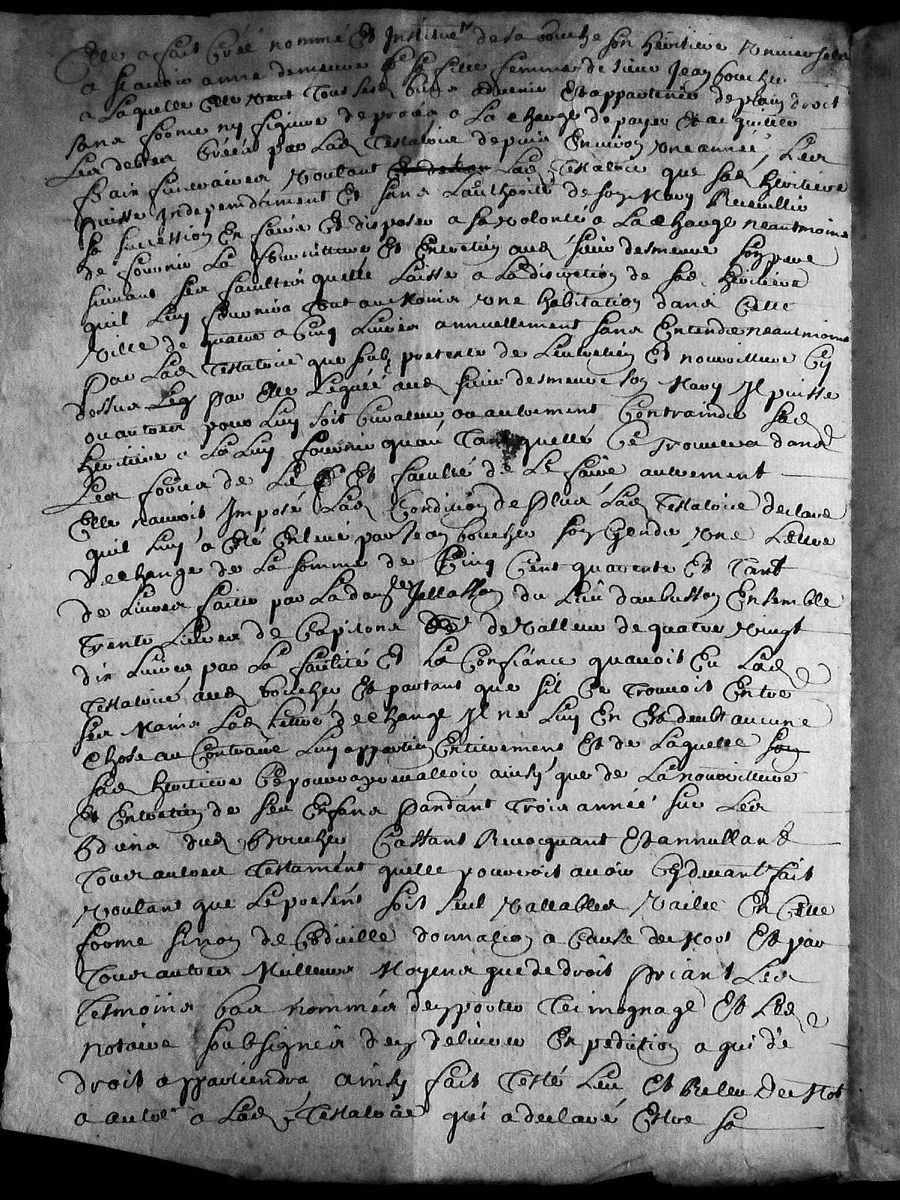 Elle a fait Créé nommé Et Institué de sa bouche son heritiere Universelle
a scavoir anne demeuve sa fille femme de sieur Jean boucher
a Laquelle Elle veut Tous ses biens advenir Et appartenir de plain droit
sans forme ny figure de procés a La charge de payer Et acquitter
Les debtes Créés par Lad Testatoire depuis Environ Une année, Les
frais funeraires voulant Lad Testatoire que sad heritiere
puisse Independament Et sans L'authorité de son Mary Recueillir
sa succession En faire Et disposer a sa volonté a La charge neantmoins
de fournir La Nourriture Et Entretien aud sieur desmeuve son pere
suivant ses facultés quelle Laisse a La discretion de sad heritiere
quil Luy fournira Tout au Moins Une habitation dans Cette
Ville de quatre a Cinq Livres annuellement sans Entendre neantmoins
par Lad Testatoire que soubz pretexte de L'entretien Et nourriture Cy
dessus par Elle Legués aud sieur desmeuve son Mary Il puisse
ou autres pour Luy soit Curateur ou autrement Contraindre sad
heritiere a La Luy fournir quau Tant quelle Ce Trouvera dans
Les forces de Le Et faculté de Le faire autrement
Elle nauroit Imposé Lad Condition de Plus Lad Testatoire declare
quil Luy a Eté Enlevé par Jean boucher son Gendre Une Lettre
dechange de La somme de Cinq Cent quarente Et Tant
de Livres faitte par La du Lieu daubusson Ensemble
Trente Livres de de Valleur de quatre Vingt
dix Livres par La facilité Et La Confiance quavoit Eu Lad
Testatoire aud boucher Et partant que sil Ce Trouvoit Entre
ses Mains Lad Lettre dechange Il ne Luy En Est deubt aucune
Chose au Contraire Luy appartien Entierement Et de Laquelle
sad heritiere Ce pourra prevalloir ainsy que de La nourriture
Et Entretien de ses Enfans Pandant Trois année sur Les
biens dud Boucher Cassant Revocquant Et annullant
Tous autres Testament quelle pouvroit avoir Cydevant fait
Voulant que Le présent soit seul Vallable Vaille En Cette
forme sinon de Codicille donnation a Cause de Mort Et par
Tous autres Meilleurs Moyens que de droit Priant Les
Tesmoins bas nommés den porter Temognage Et Led
notaire soubsigner den delivrer Expedition a qui de
droit appartiendra ainsy fait Testé Leu Et Releu de Mot
a autre a Lad Testatoire qui a declaré Estre sa